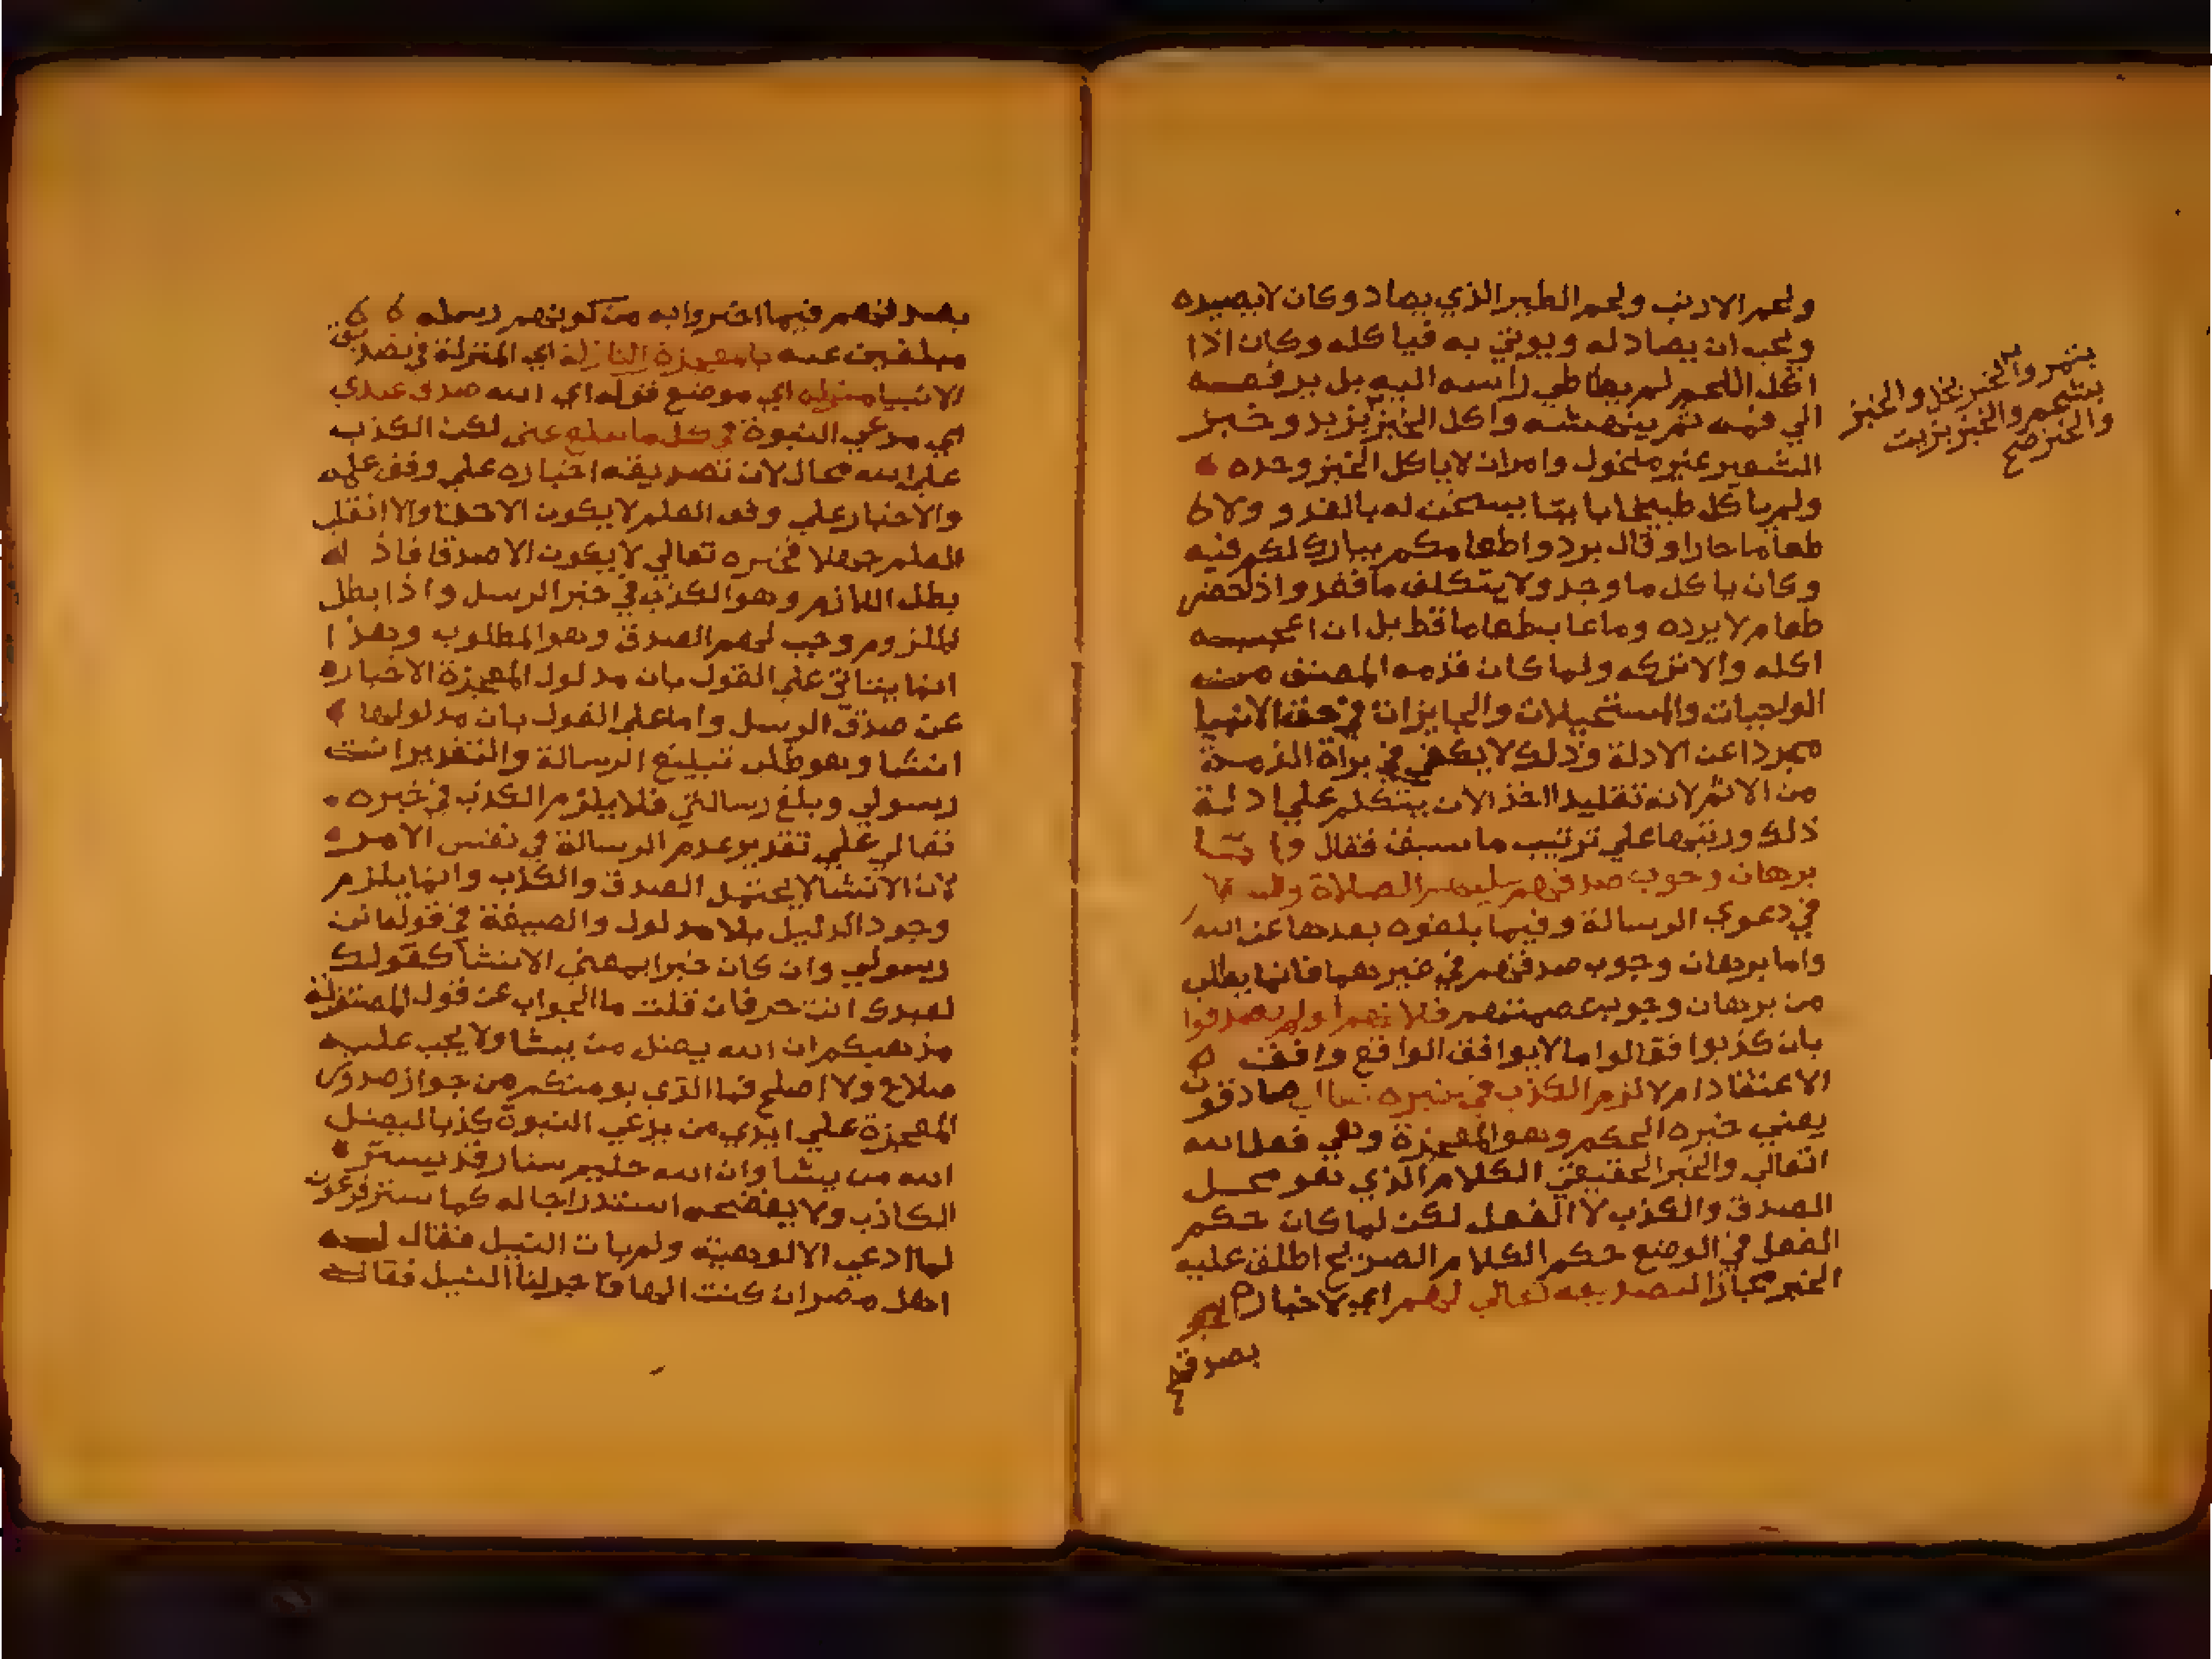 ولحم الارنب ولحم الطير الذي يصاد وكان لا يصيده
ويحب ان يصاد له ويوتي به فياكله وكان اذا
اكل اللحم لم يطاطي راسه اليه بل يرفعه
الي فمه ثم ينهشه واكل الخبز بزبد وخبز
الشعير غير منخول وامر ان لا ياكل الخبز وحده
ولم ياكل طبيخا بايتا يسخن له بالغد و ولا
طعاما حارا وقال بردوا طعامكم يبارك لكم فيه
وكان ياكل ما وجد ولا يتكلف ما فقد واذا حضر
طعام لا يرده وما عاب طعاما قط بل ان اعجبه
اكله والا تركه ولما كان قدمه المصنف من
الواجبات والمستحيلات والجايزات في حق الانبيا
مجردا عن الادلة وذلك لا يكفي في براة الذمة
من الاثم لانه تقليد اخذ الان يتكلم علي ادلة
ذلك ورتبها علي ترتيب ما سبق فقال واما
برهان وجوب صدقهم عليهم الصلاة والسلام
في دعوي الرسالة وفيما بلغوه بعدها عن الله
واما برهان وجوب صدقهم في غيرهما فانما يطلب
من برهان وجوب عصمتهم فلانهم لو لم يصدقوا
بان كذبوا فقالوا ما لا يوافق الواقع وافق
الاعتقاد ام لا لزم الكذب في خبره تعالي صادقون
يعني خبره الحكم وهو المعجزة وهي فعل الله
تعالي والخبر الحقيقي الكلام الذي هو محل
الصدق والكذب لا الفعل لكن لما كان حكم
الفعل في الوضع حكم الكلام الصريح اطلق عليه
الخبر مجازا لتصديقه تعالي لهم اي لاخباره
بصدقهم
بتمر والخبز بخل والخبز
بشحم والخبز بزيت
والخبز صح
بصدقهم فيما اخبروا به من كونهم رسله
مبلغين عنه بالمعجزة النازلة اي المنزلة في تصديق
الانبيا منزلة اي موضع قوله اي الله صدق عبدي
اي مدعي النبوة في كل ما يبلغ عني لكن الكذب
علي الله محال لان تصديقه اخباره علي وفق علمه
والاخبار علي وفق العلم لا يكون الا صدقا والا انقلب
العلم جهلا فخبره تعالي لا يكون الا صدقا فاذ
بطل اللازم وهو الكذب في خبر الرسل واذا بطل
الملزوم وجب لهم الصدق وهو المطلوب وهذا
انما يتاتي علي القول بان مدلول المعجزة الاخبار
عن صدق الرسل واما علي القول بان مدلولها
انشا وهو طلب تبليغ الرسالة والتقدير انت
رسولي وبلغ رسالتي فلا يلزم الكذب في خبره
تعالي علي تقدير عدم الرسالة في نفس الامر
لان الانشا لا يحتمل الصدق والكذب وانما يلزم
وجود الدليل بلا مدلول والصيغة في قولها انت
رسولي وان كان خبرا بمعني الانشا كقولك
لعبدك انت حر فان قلت ما الجواب عن قول المعتزلة
مذهبكم ان الله يضل من يشا ولا يجب عليه
صلاح ولا اصلح فما الذي يومنكم من جواز صدور
المعجزة علي ايدي من يدعي النبوة كذبا ليضل
الله من يشا وان الله حليم ستار قد يستر
الكاذب ولا يفضحه استدراجا له كما ستر فرعون
لما ادعي الالوهية ولم يات النيل فقال له
اهل مصر ان كنت الها فاجر لنا النيل فقال